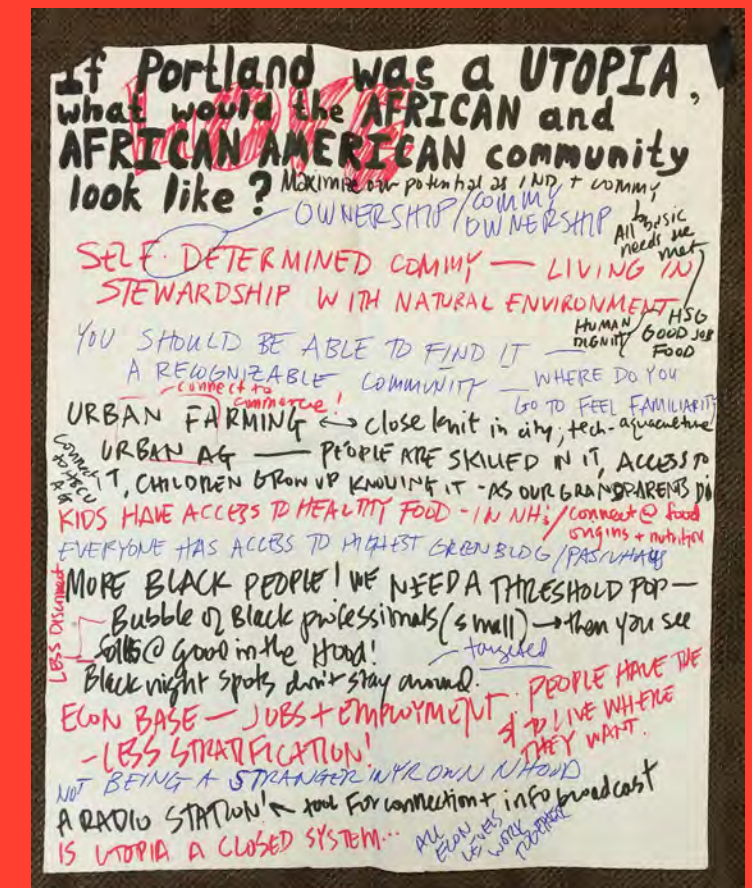 LOVE
If Portland was a UTOPIA,
what would the AFRICAN and
AFRICAN AMERICAN community
look like?
Maximize our potential as IND, + commy
OWNERSHIP/COMMY
OWNERSHIP
All basic
needs are
met
SELF-DETERMINED COMMY — LIVING IN
STEWARDSHIP WITH NATURAL ENVIRONMENT
HUMAN
DIGNITY
HSG
GOOD JOB
FOOD
YOU SHOULD BE ABLE TO FIND IT —
A RECOGNIZABLE COMMUNITY — WHERE DO YOU
GO TO FEEL FAMILIARITY
connect to
commerce!
URBAN FARMING ↔ close knit in city, tech-aquaculture
CONNECT
TO HBCU
AG
URBAN AG — PEOPLE ARE SKILLED IN IT, ACCESS TO
IT, CHILDREN GROW UP KNOWING IT - AS OUR GRANDPARENTS DI
KIDS HAVE ACCESS TO HEALTHY FOOD - IN NH;/connect @ food
origins + nutrition
EVERYONE HAS ACCESS TO HIGHEST GREEN BLDG/PASIVHAUS
MORE BLACK PEOPLE! WE NEED A THRESHOLD POP—
LESS Disconnect
Bubble of Black professionals (small) → then you see
folks @ Good in the Hood!
targeted
Black night spots don't stay around.
ECON BASE — JOBS + EMPLOYMENT.
- LESS STRATIFICATION!
PEOPLE HAVE THE
$ TO LIVE WHERE
THEY WANT.
NOT BEING A STRANGER IN YR OWN NHOOD
A RADIO STATION! ↖ tool for connection + info broadcast
IS UTOPIA A CLOSED SYSTEM...
ALL
ECON
LEVELS
WORK
TOGETHER